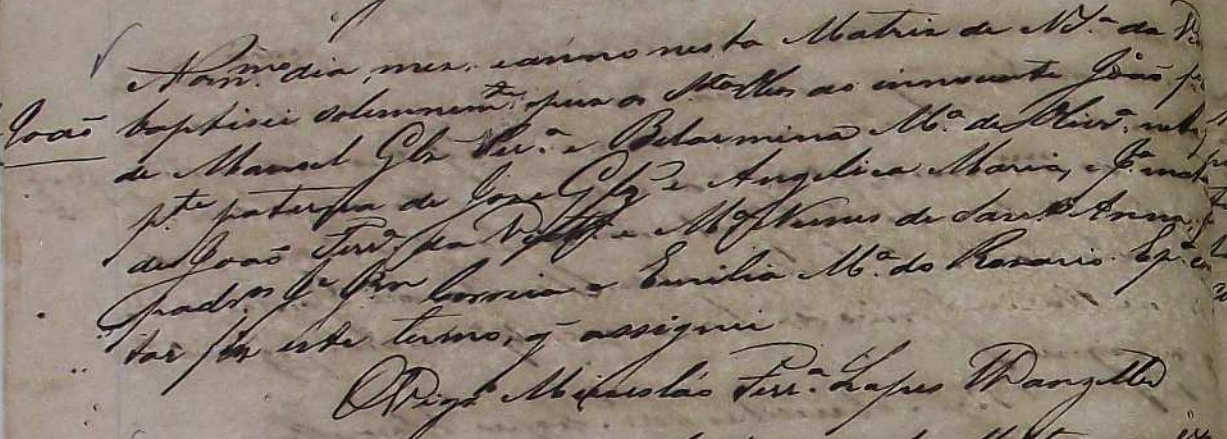 No m.mo dia, mez, e anno nesta Matriz de N. S.ª da
João baptisei solemnem.te, e puz os S.tos Oleos ao innocente João, f.º
de Manoel Glz Per.ª e Belarmina M.ª de Oliv.ª, neto
p.te paterna de José Glz e Angelica Maria, e p.ª mat
de João Ferr.ª da e M.ª Nunes de Sant Anna,
padr.os J.e Correia e Emilia M.ª do Rosario. E p.ª cons
tar fiz este termo, q̃ assignei
O Vig.º Ferr.ª Lopes